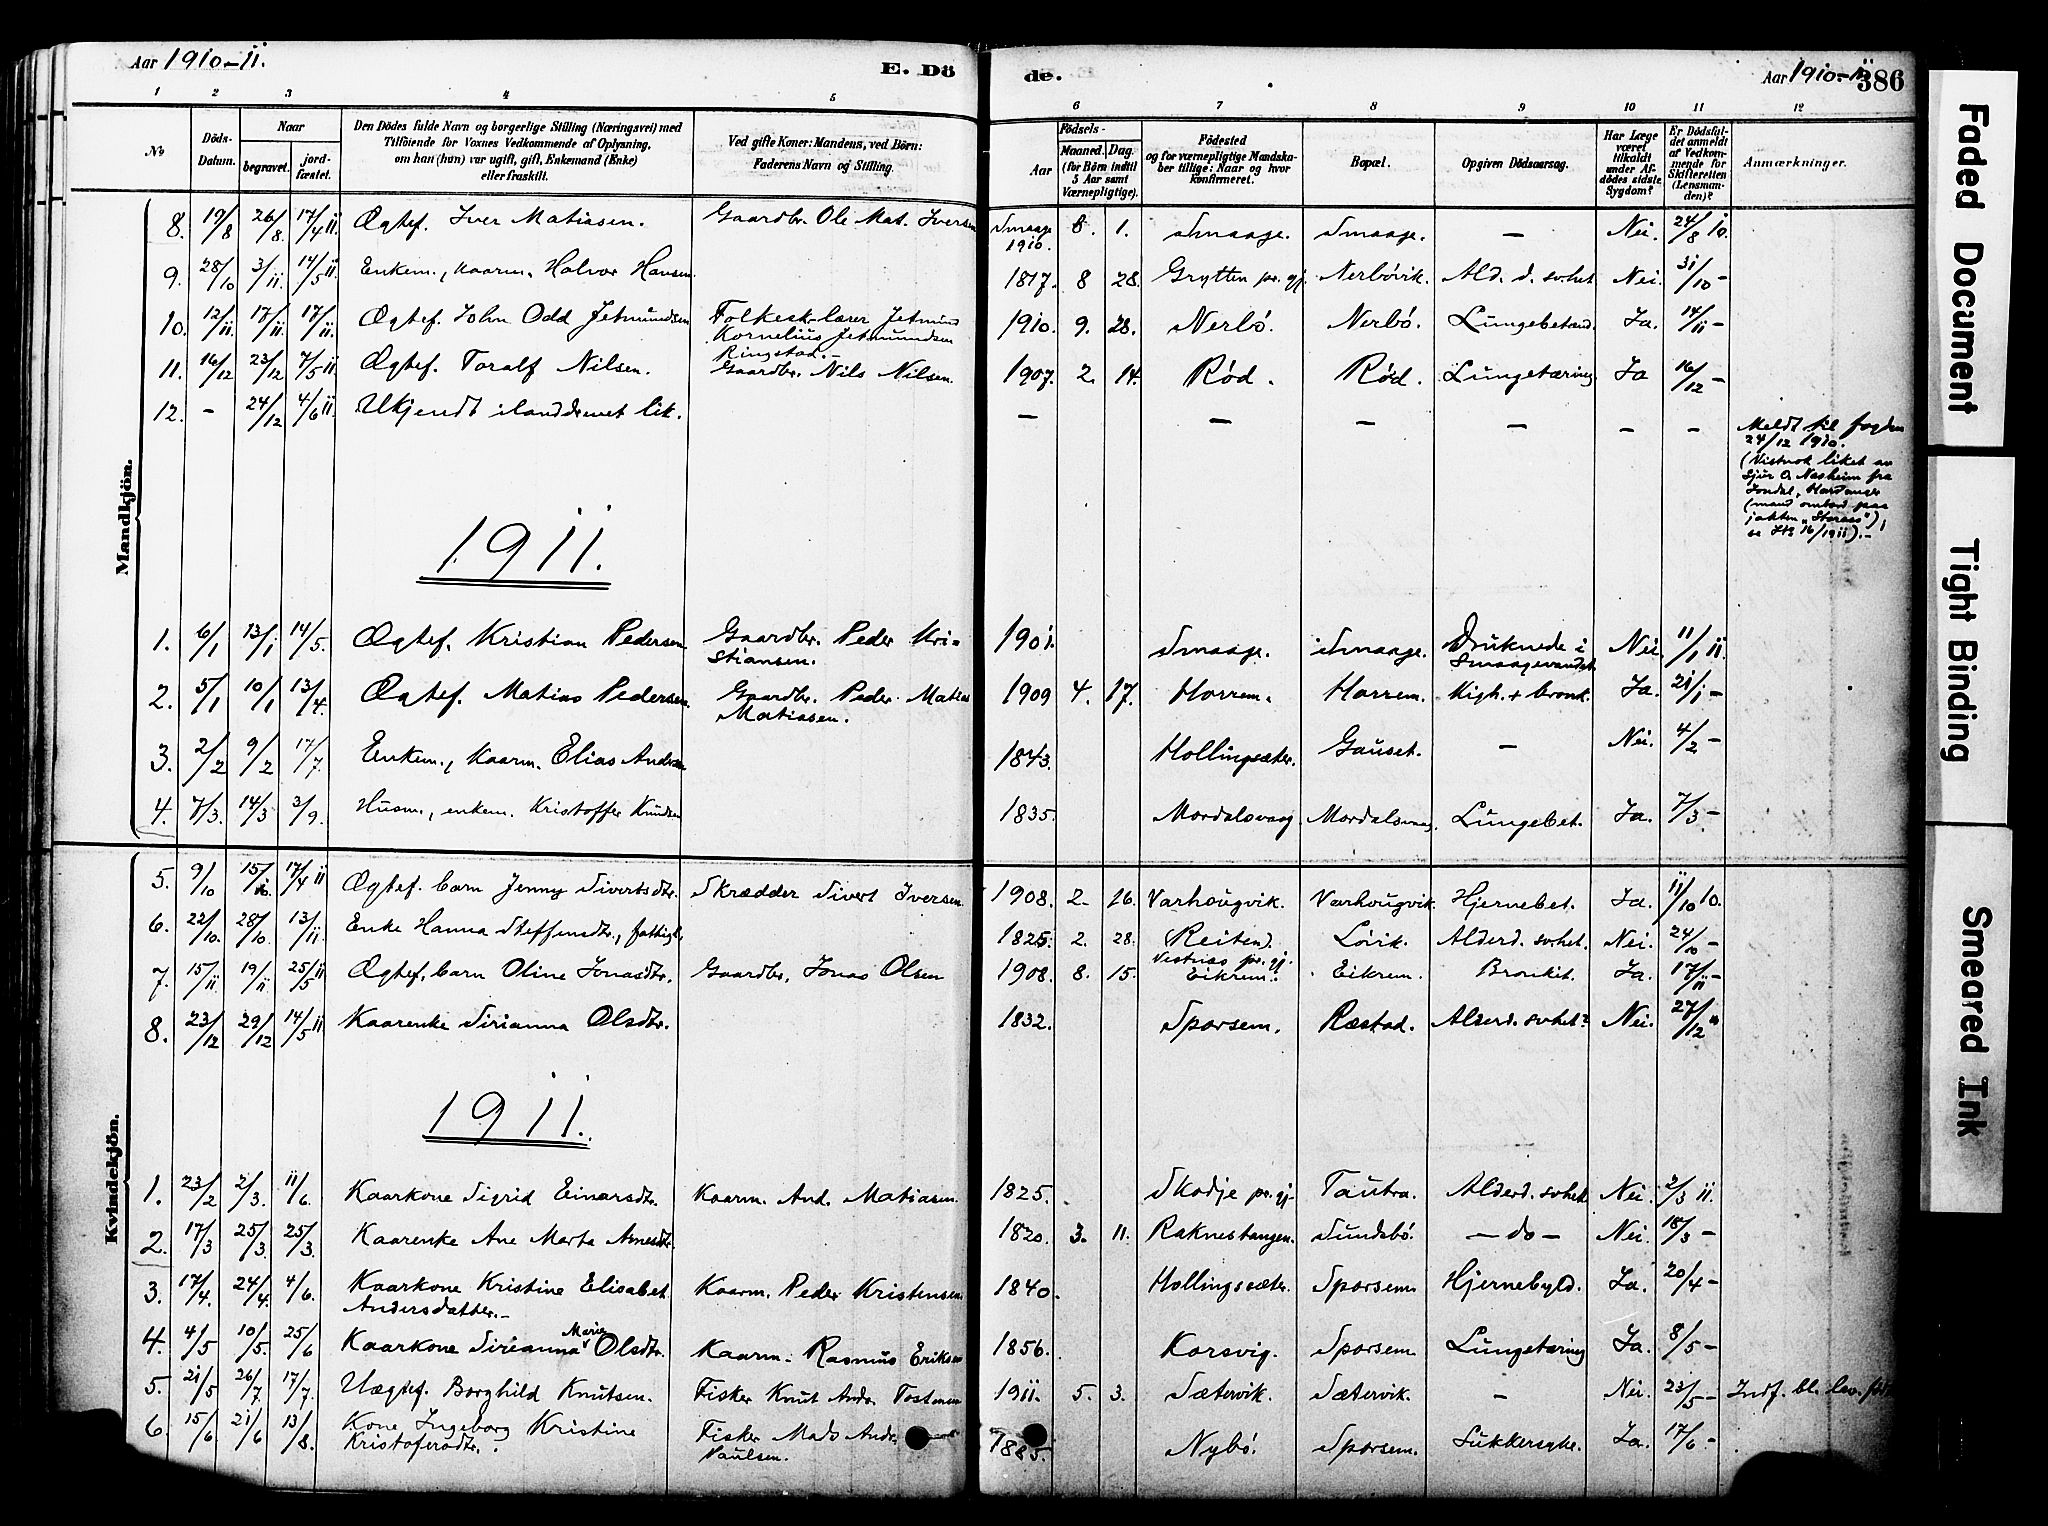 Aar 1910-11.
E. Dö
de.
Aar 1910-11.
386
1 2 3 4 5 6 7 8 9 10 11 12
No
Döds-
Datum.
Naar
begravet.
jord-
fæstet.
Den Dödes fulde Navn og borgerlige Stilling (Næringsvei) med
Tilföiende for Voxnes Vedkommende af Oplysning,
om han (hun) var ugift, gift, Enkemand (Enke)
eller fraskilt.
Ved gifte Koner: Mandens, ved Börn:
Faderens Navn og Stilling.
Födsels-
Aar
Maaned. Dag.
(for Börn indtil
5 Aar samt
Værnepligtige).
Födested
og for værnepligtige Mandska-
ber tillige: Naar og hvor
konfirmeret.
Bopæl.
Opgiven Dödsaarsag.
Har Læge
været
tilkaldt
under Af-
dödes sidste
Sygdom?
Er Dödsfal-
det anmeldt
af Vedkom-
mende for
Skifteretten
(Lensman-
den)?
Anmærkninger.
Mandkjön.
8. 19/8 26/8. 17/4 11. Ægtef. Iver Matiasen. Gaardbr. Ole Mat. Iversen Smaage 1910. 8. 1. Smaage. Smaage. — Nei. 24/8 10.
9. 28/10 3/11. 14/5 11. Enkem., kaarm. Halvor Hansen 1817. 8 28. Grytten pr.gj. Nerbövik. Ald. d. svhet Nei. 31/10 -
10. 12/11. 17/11. 17/11. Ægtef. John Odd Jetmundsen Folkesk.lærer Jetmund
Kornelius Jetmundsen
Ringstad.— 1910. 9. 28. Nerbö. Nerbö. Lungebetænd. Ja. 14/11 -
11. 16/12 23/12 7/5 11. Ægtef. Toralf Nilsen. Gaardbr. Nils Nilsen. 1907. 2. 14. Röd. Röd. Lungetæring Ja 16/12 -
12. - 24/12 4/6 11. Ukjendt ilanddrevet lik. — — — — — —
Meldt til fogden
24/12 1910.
(Vistnok liket av
Sjur O. Næsheim fra
Jondal, Hardanger
(mand ombord paa
jakten
1911.
1. 6/1 13/1 14/5. Ægtef. Kristian Pedersen Gaardbr. Peder Kri-
stiansen. 1901. Smaage. Smaage. Druknede i
Smaagevandet Nei. 11/1 11.
2. 5/1 10/1 13/4. Ægtef. Matias Pedersen. Gaardbr. Peder Matias
Matiasen. 1909 4. 17. Horrem. Horrem. Kigh. + bronk. Ja. 21/1 -
3. 2/2 9/2 17/7. Enkem., kaarm. Elias Andersen 1843. Hollingsæter. Gauset. — Nei. 4/2 -
4. 7/3. 14/3 3/9. Husm., enkem. Kristoffer Knudsen 1835. Mordalsvaag Mordalsvaag. Lungebet. Ja. 7/3 -
Kvindekjön.
5. 9/10 15/10. 17/4 11 Ægtef. barn Jenny Sivertsdtr. Skrædder Sivert Iversen 1908. 2. 26. Varhougvik. Varhougvik. Hjernebet. Ja. 11/10 10.
6. 22/10. 28/10. 13/11. Enke Hanna Steffensdtr., fattigl. 1825. 2. 28. Reiten
Vestnæs pr.gj. Lövik. Alderd. svhet. Nei. 24/10 -
7. 15/11. 19/11. 25/5 11 Ægtef. barn Oline Jonasdtr. Gaardbr. Jonas Olsen 1908. 8. 15. Eikrem. Eikrem. Bronkit. Ja. 17/11 -
8. 23/12 29/12 14/5 11 Kaarenke Sirianna Olsdtr. 1832. Sporsem. Ræstad. Alderd. svhet? Nei. 27/12 "
1911.
1. 23/2 2/3. 11/6. Kaarkone Sigrid Einarsdtr. Kaarm. And. Matiasen. 1825. Skodje pr.gj. Tautra. Alderd. svhet Nei. 2/3 11.
2. 17/3 25/3. 25/3. Kaarenke Ane Marta Arnesdtr. 1820. 3. 11. Raknestangen. Sundsbö. — do — Nei. 18/3 -
3. 17/4. 24/4. 4/6. Kaarkone Kristine Elisabet
Andersdatter.- Kaarm. Peder Kristensen 1840. Hollingsæter. Sporsem Hjernebyld. Ja. 20/4 -
4. 4/5 10/5. 25/6 Kaarkone Sirianna Marie Olsdtr. Kaarm. Rasmus Eriksen 1856. Korsvig. Sporsem Lungetæring Ja 8/5 -
5. 21/5 26/7 17/7. Uægtef. Borghild Knutsen. Fisker Knut Andr. Tostensen 1911. 5. 3. Sætervik. Sætervik. — Nei. 23/5 - Indf. bl. lev. födte
6. 15/6. 21/6 13/8. Kone Ingeborg Kristine
Kristofersdtr. Fisker Mads Andr.
Paulsen. 1885. Nybö. Sporsem. Sukkersyke. Ja. 17/6 -
Faded Document
Tight Binding
Smeared Ink